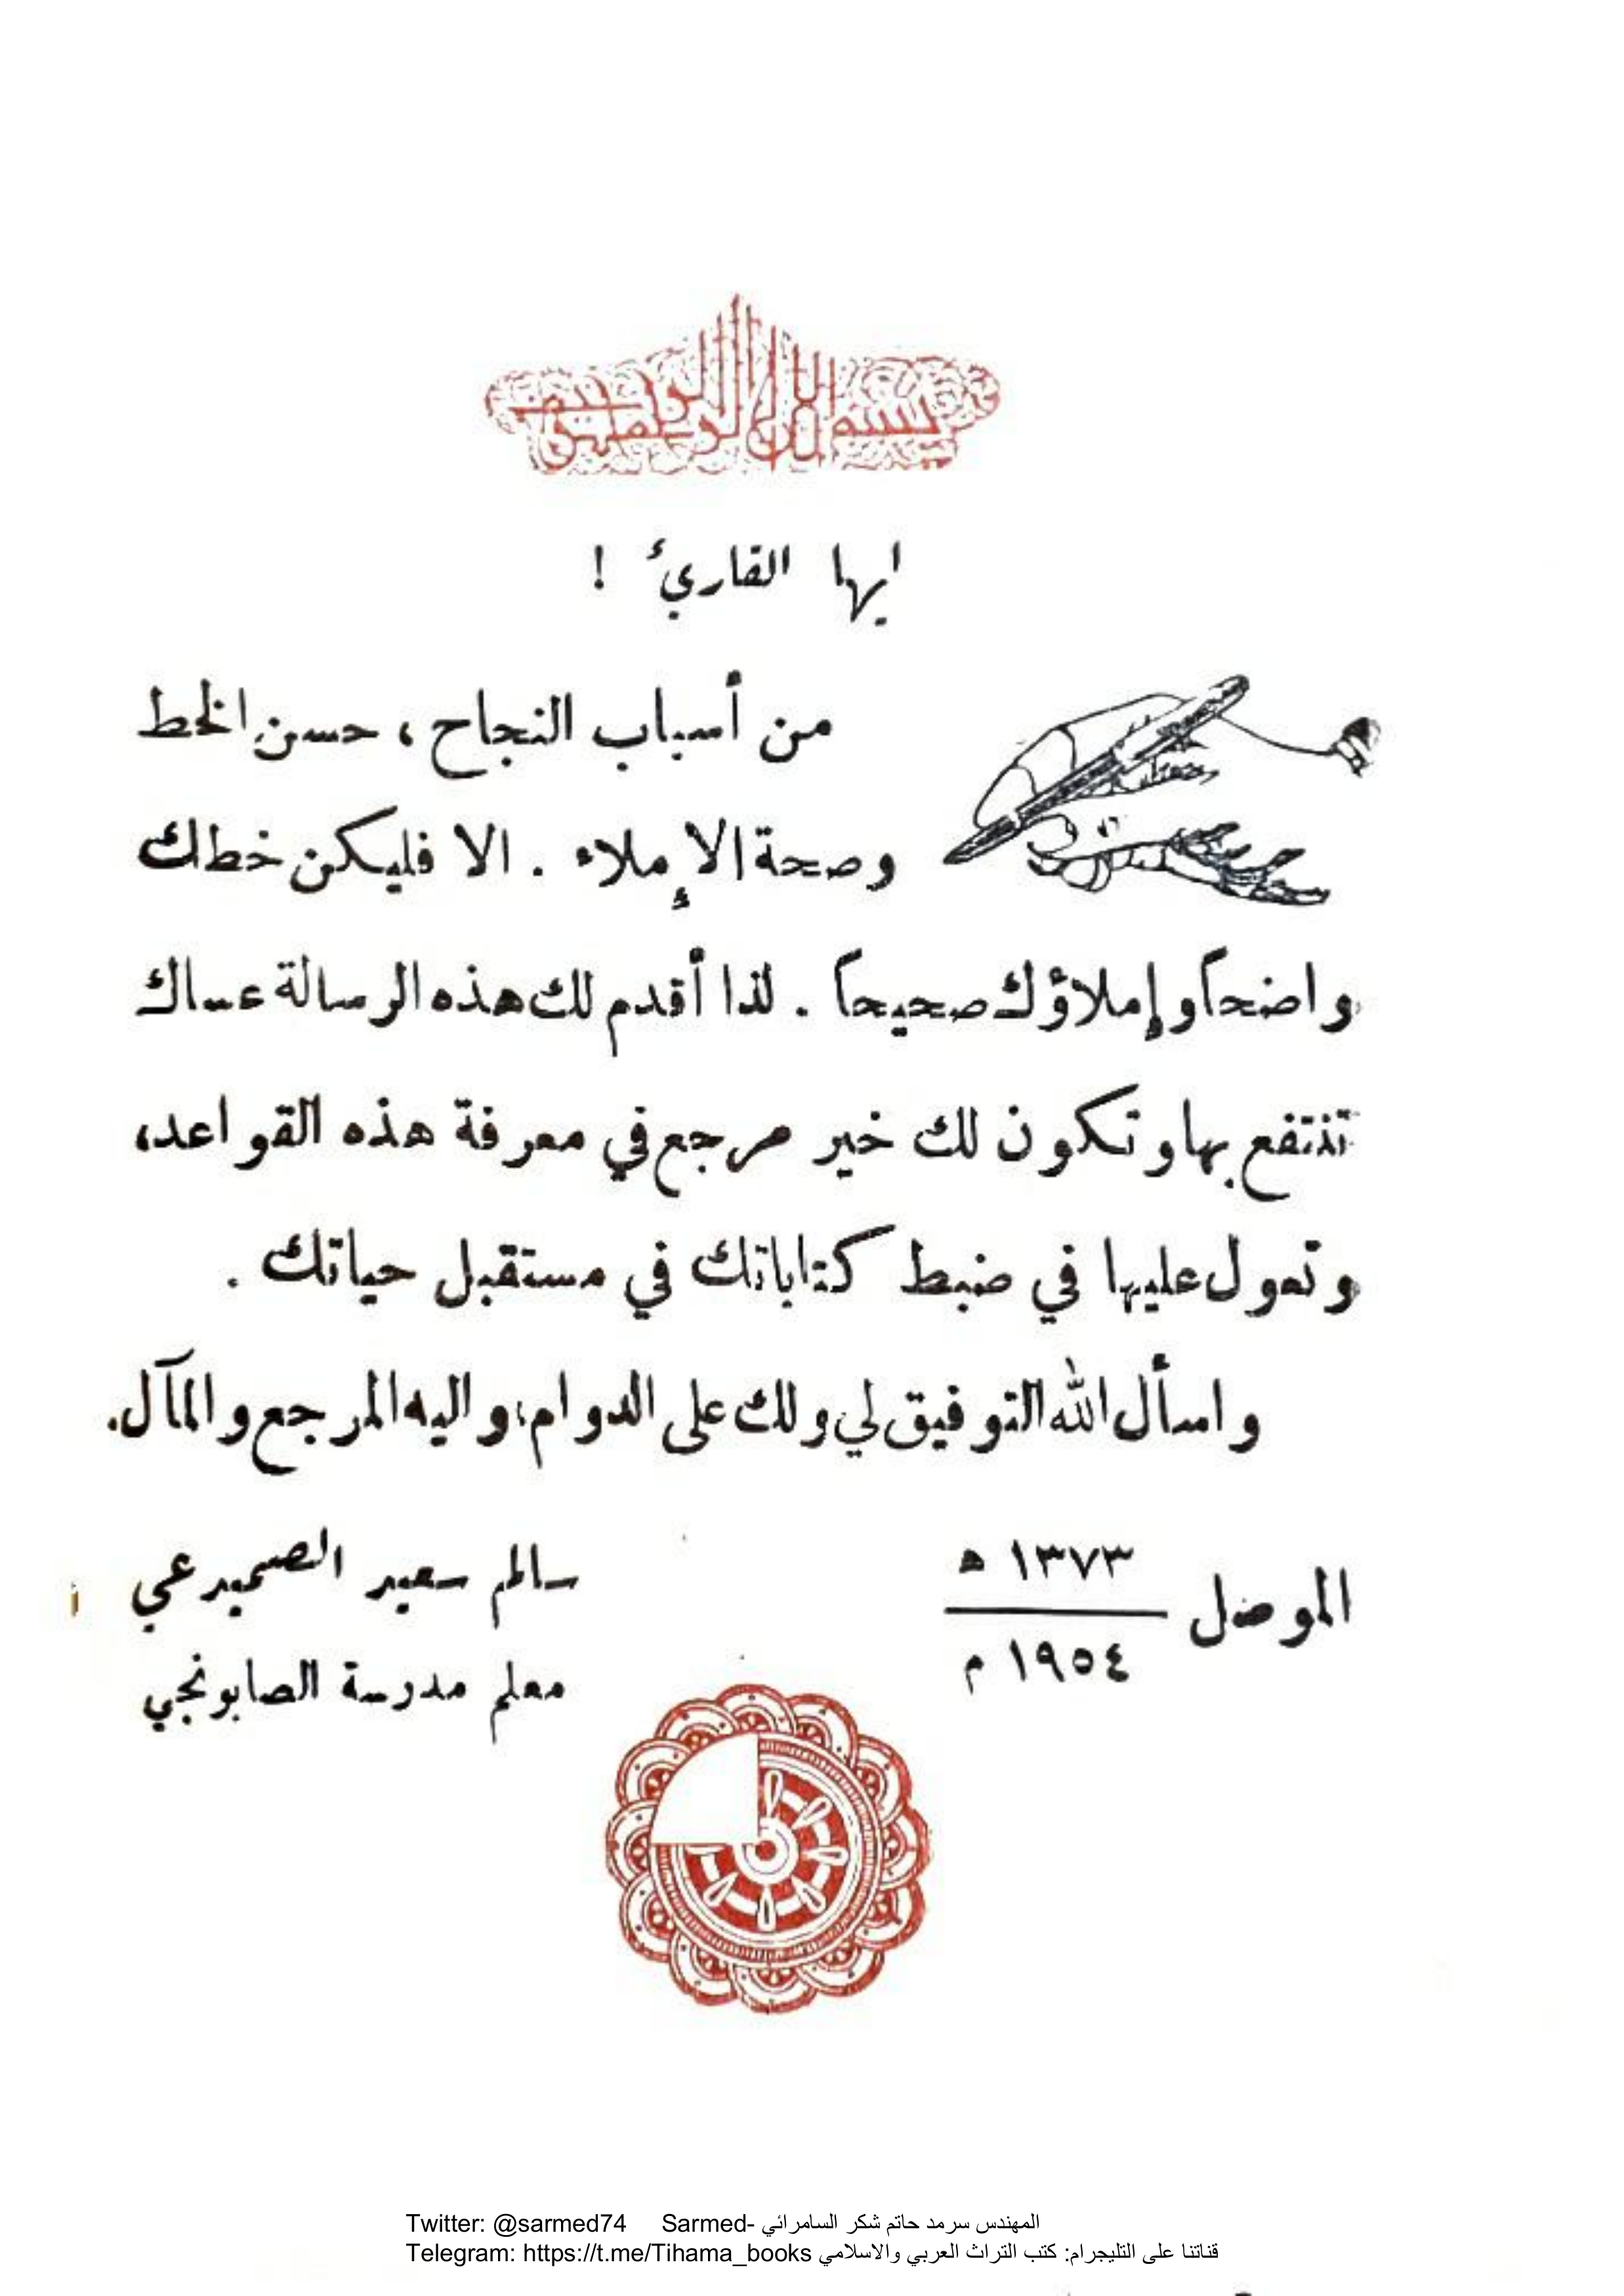 بسم الله الرحمن الرحيم
ايها القاريء !
من أسباب النجاح ، حسن الخط
وصحة الإملاء . الا فليكن خطك
واضحاً وإملاؤك صحيحاً . لذا أقدم لك هذه الرسالة عساك
تنتفع بها وتكون لك خير مرجع في معرفة هذه القواعد،
وتعول عليها في ضبط كتاباتك في مستقبل حياتك .
واسأل الله التوفيق لي ولك على الدوام، واليه المرجع والمآل.
الموصل ١٣٧٣ ه
١٩٥٤ م
سالم سعيد الصميدعي
معلم مدرسة الصابونجي
Twitter: @sarmed74 Sarmed- المهندس سرمد حاتم شكر السامرائي
Telegram: https://t.me/Tihama_books قناتنا على التليجرام: كتب التراث العربي والاسلامي